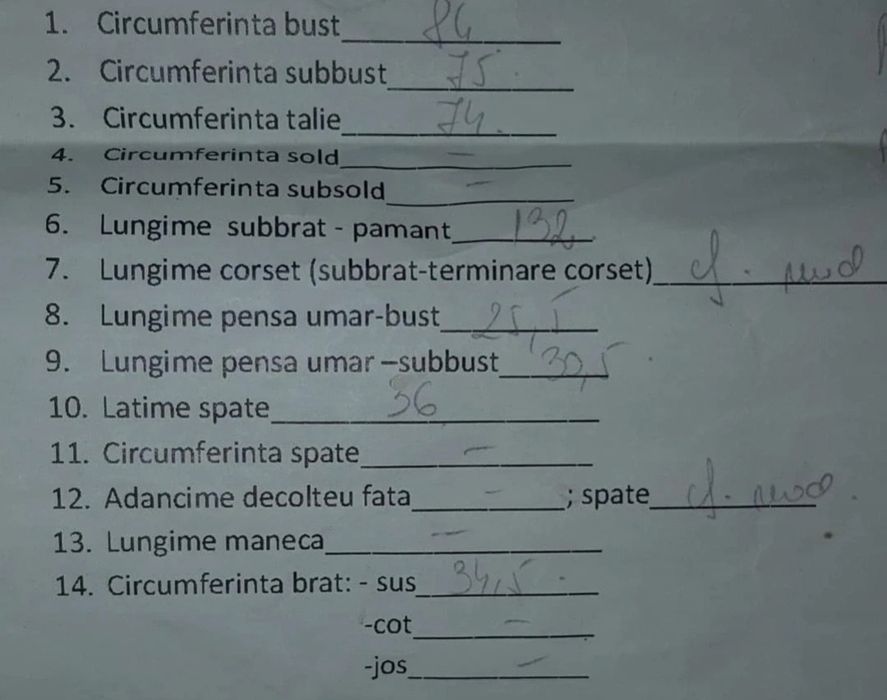 1. Circumferinta bust 84
2. Circumferinta subbust 75
3. Circumferinta talie 74
4. Circumferinta sold —
5. Circumferinta subsold —
6. Lungime subbrat - pamant 132
7. Lungime corset (subbrat-terminare corset) cf. mod
8. Lungime pensa umar-bust 25,5
9. Lungime pensa umar –subbust 30,5
10. Latime spate 36
11. Circumferinta spate —
12. Adancime decolteu fata — ; spate cf. mod
13. Lungime maneca —
14. Circumferinta brat: - sus 34,5
-cot —
-jos —